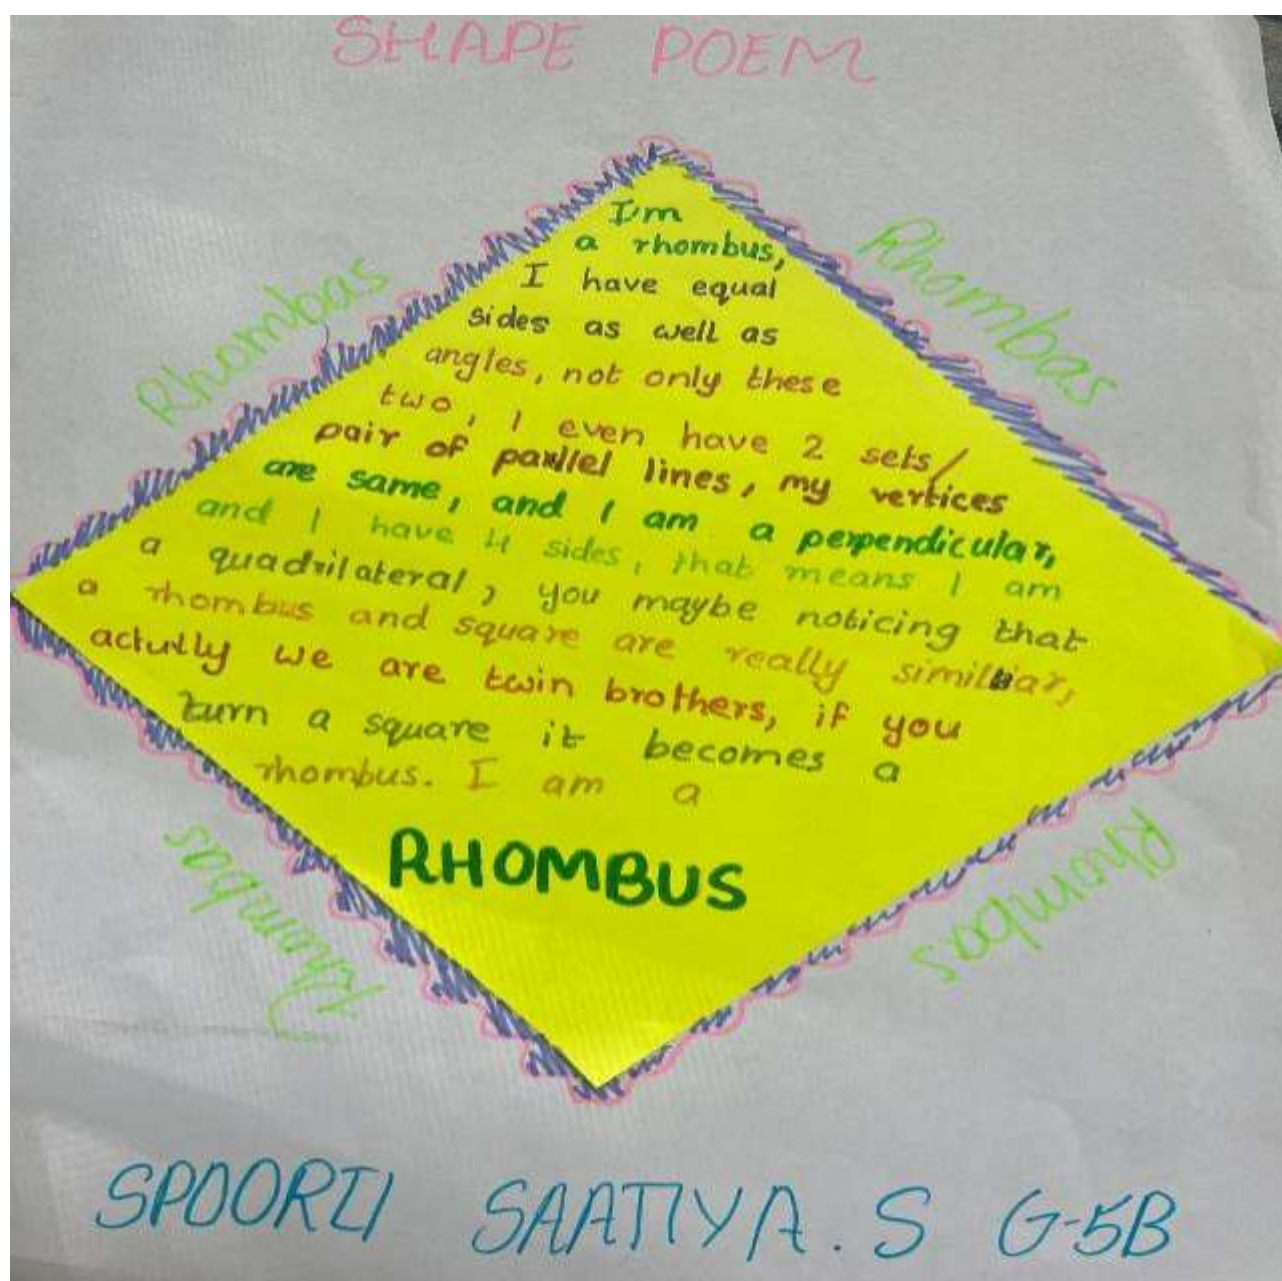 SHAPE POEM
Rhombas
Rhombas
I'm
a rhombus,
I have equal
sides as well as
angles, not only these
two, I even have 2 sets/
pair of parllel lines, my vertices
are same, and I am a perpendicular,
and I have 4 sides, that means I am
a quadrilateral, you maybe noticing that
a rhombus and square are really similiar,
actully we are twin brothers, if you
turn a square it becomes a
rhombus. I am a
RHOMBUS
Rhombas
Rhombas
SPOORTI SAATIYA. S G-5B